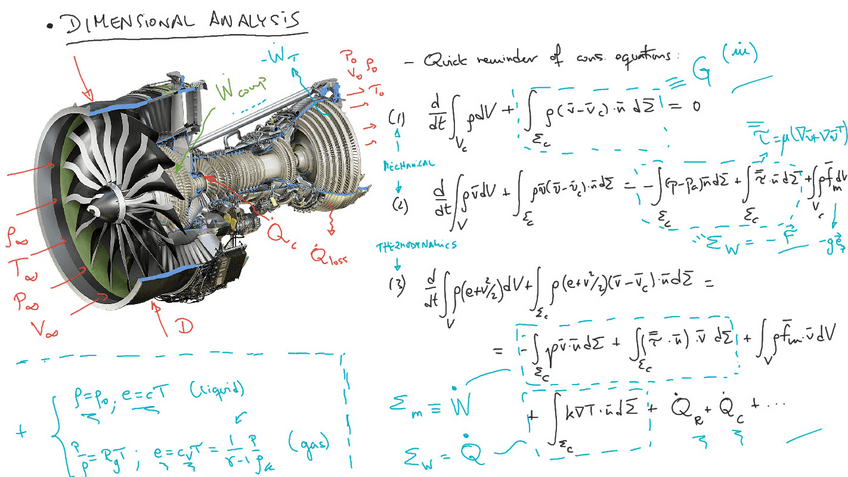 • DIMENSIONAL ANALYSIS
-Ẇ_T
Ẇ_comp
P_0 ρ_0
V_0 T_0
ρ_∞
T_∞
P_∞
V_∞
D
Q̇_c
Q̇_loss
- Quick reminder of cons. equations:
≡ G (ṁ)
(1) d/dt ∫_{V_c} ρdV + ∫_{Σ_c} ρ(v̄-v̄_c)·n̄ dΣ = 0
τ̿ = μ(∇v̄+∇v̄^T)
MECHANICAL
(2) d/dt ∫_V ρv̄dV + ∫_{Σ_c} ρv̄(v̄-v̄_c)·n̄dΣ = -∫_{Σ_c} (p-p_a)n̄dΣ + ∫_{Σ_c} τ̿·n̄dΣ + ∫_{V_c} ρf̄_m dV
Σ_W = -F̄
THERMODYNAMICS
(3) d/dt ∫_V ρ(e+v²/2)dV + ∫_{Σ_c} ρ(e+v²/2)(v̄-v̄_c)·n̄dΣ =
= -∫_{Σ_c} pv̄·n̄dΣ + ∫_{Σ_c} (τ̿·n̄)·v̄ dΣ + ∫_V ρf̄_m·v̄dV
Σ_m ≡ Ẇ
+ ∫_{Σ_c} k∇T·n̄dΣ + Q̇_R + Q̇_C + ...
Σ_W = Q̇
+ { ρ=ρ_0; e=cT (liquid)
P/ρ = R_gT; e=c_vT = 1/(γ-1) P/ρ (gas)